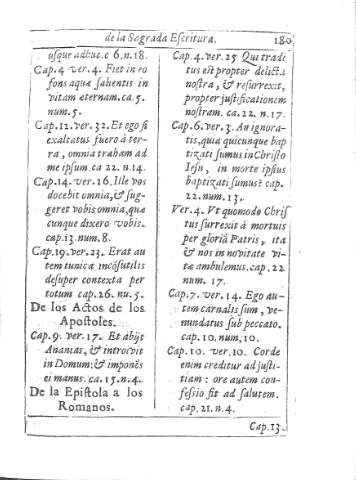 de la Sagrada Escritura. 180
usque adhuc. c 6, n. 18.
Cap. 4 ver. 4. Fiet in eo
fons aqua salientis in
vitam eternam. ca. 5.
num. 5.
Cap. 12. ver. 32. Et ego si
exaltatus fuero à ter-
ra, omnia traham ad
me ipsum. ca 22. n. 14.
Cap. 14. ver. 16. Ille vos
docebit omnia, & sug-
geret vobis omnia, quæ
cunque dixero vobis.
cap. 13. num. 8.
Cap. 19. ver. 23. Erat au
tem tunica incōsutilis
desuper contexta per
totum cap. 26. nu. 5.
De los Actos de los
Apostoles.
Cap. 9. ver. 17. Et abijt
Ananias, & introivit
in Domum: & imponēs
ei manus. ca. 15. n. 4.
De la Epistola a los
Romanos.
Cap. 4. ver. 25 Qui tradi
tus est propter delicta
nostra, & resurrexit,
propter justificationem
nostram. ca. 22. n. 17.
Cap. 6. ver. 3. An ignora-
tis, quia quicunque bap
tizati sumus in Christo
Iesu, in morte ipsius
baptizati sumus? cap.
22. num. 13.
Ver. 4. Vt quomodo Chris
tus surrexit à mortuis
per gloriā Patris, ita
& nos in novitate vi-
tæ ambulemus. cap. 22
num. 17.
Cap. 7. ver. 14. Ego au-
tem carnalis sum, ve-
nundatus sub peccato.
cap. 10. num, 10.
Cap. 10. ver. 10. Corde
enim creditur ad justi-
tiam: ore autem con-
fessio fit ad salutem.
cap. 21. n. 4.
Cap. 13.